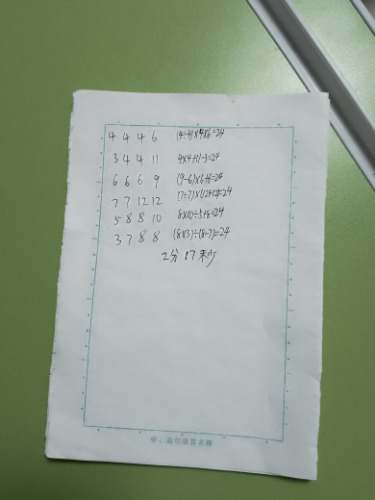 4 4 4 6 (4÷4)×4×6=24
3 4 4 11 4×4+11-3=24
6 6 6 9 (9-6)×6+6=24
7 7 12 12 (7÷7)×(12+12)=24
5 8 8 10 8×10÷5+8=24
3 7 8 8 (8×3)÷(8-7)=24
2分 17秒